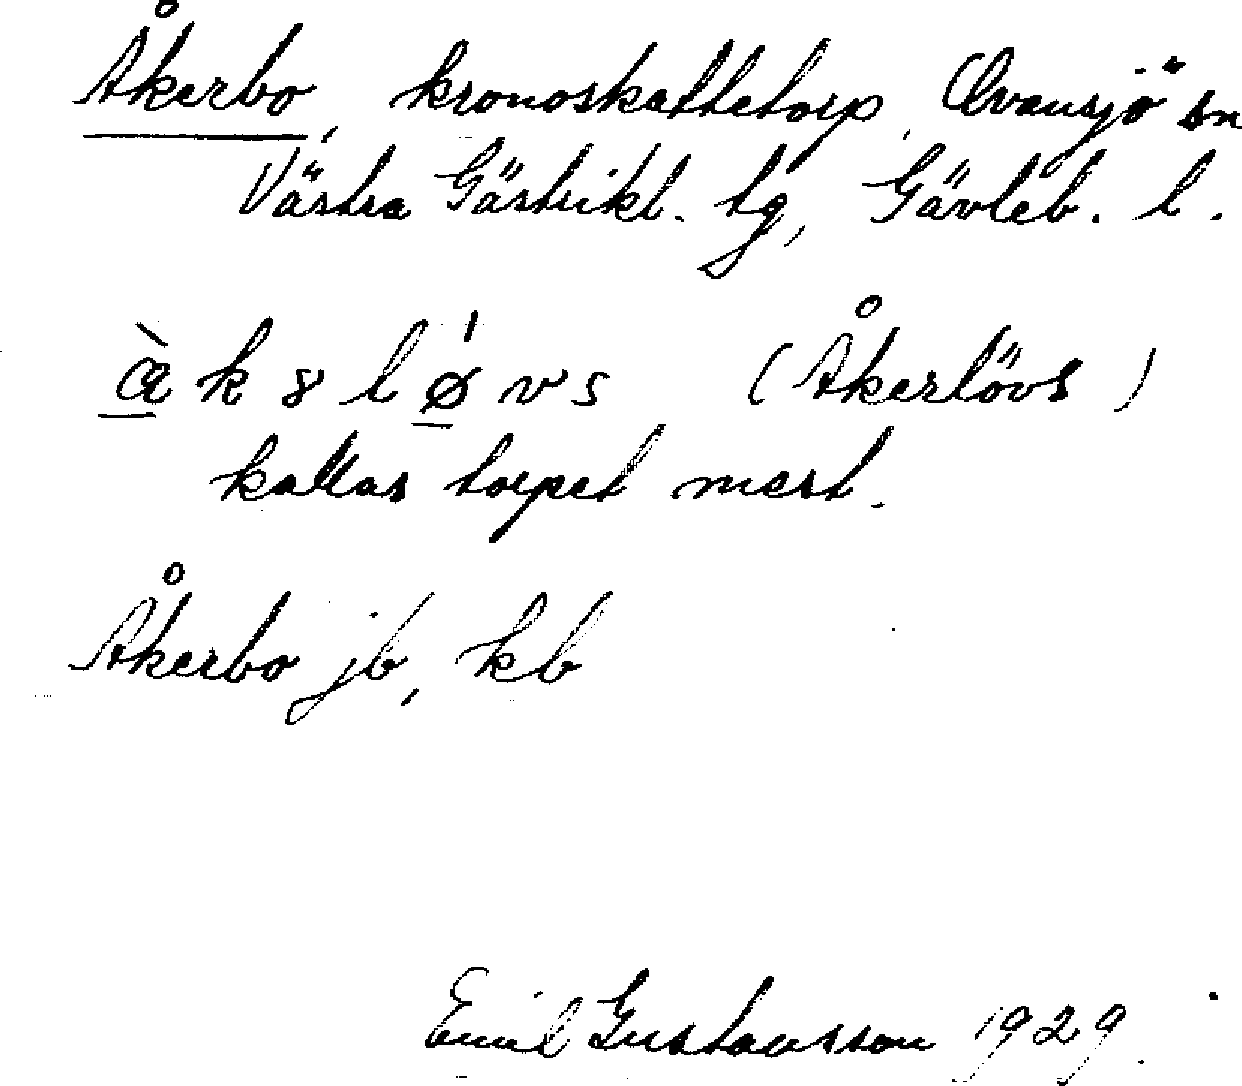 Åkerbo, kronoskattetorp, Ovansjö sn
Västra Gästrikl. tg, Gävleb. l.
(Åkerlövs)
kallas torpet mest.
Åkerbo jb, kb
Emil Gustavsson 1929.